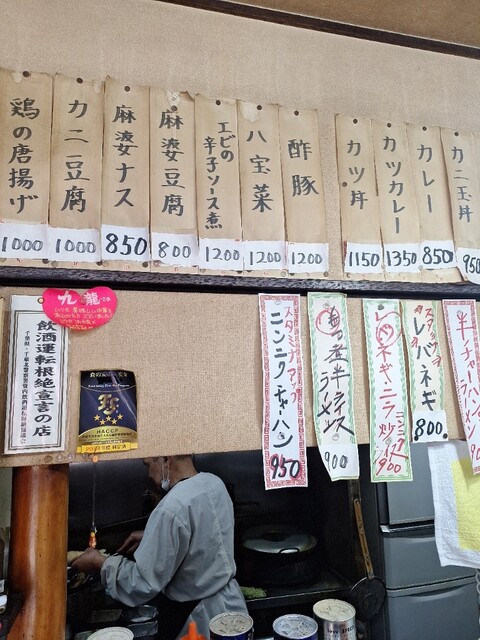 鶏の唐揚げ
1000
カニ豆腐
1000
麻婆ナス
850
麻婆豆腐
800
エビの
辛子ソース煮
1200
八宝菜
1200
酢豚
1200
カツ丼
1150
カツカレー
1350
カレー
850
カニ玉丼
950
九龍
飲酒運転根絶宣言の店
HACCP
スタミナアップ
ニンニクチャーハン
950
半ライス
ラーメン
900
ネギ・ニラ
900
スタミナ
レバネギ
800
半チャーハン